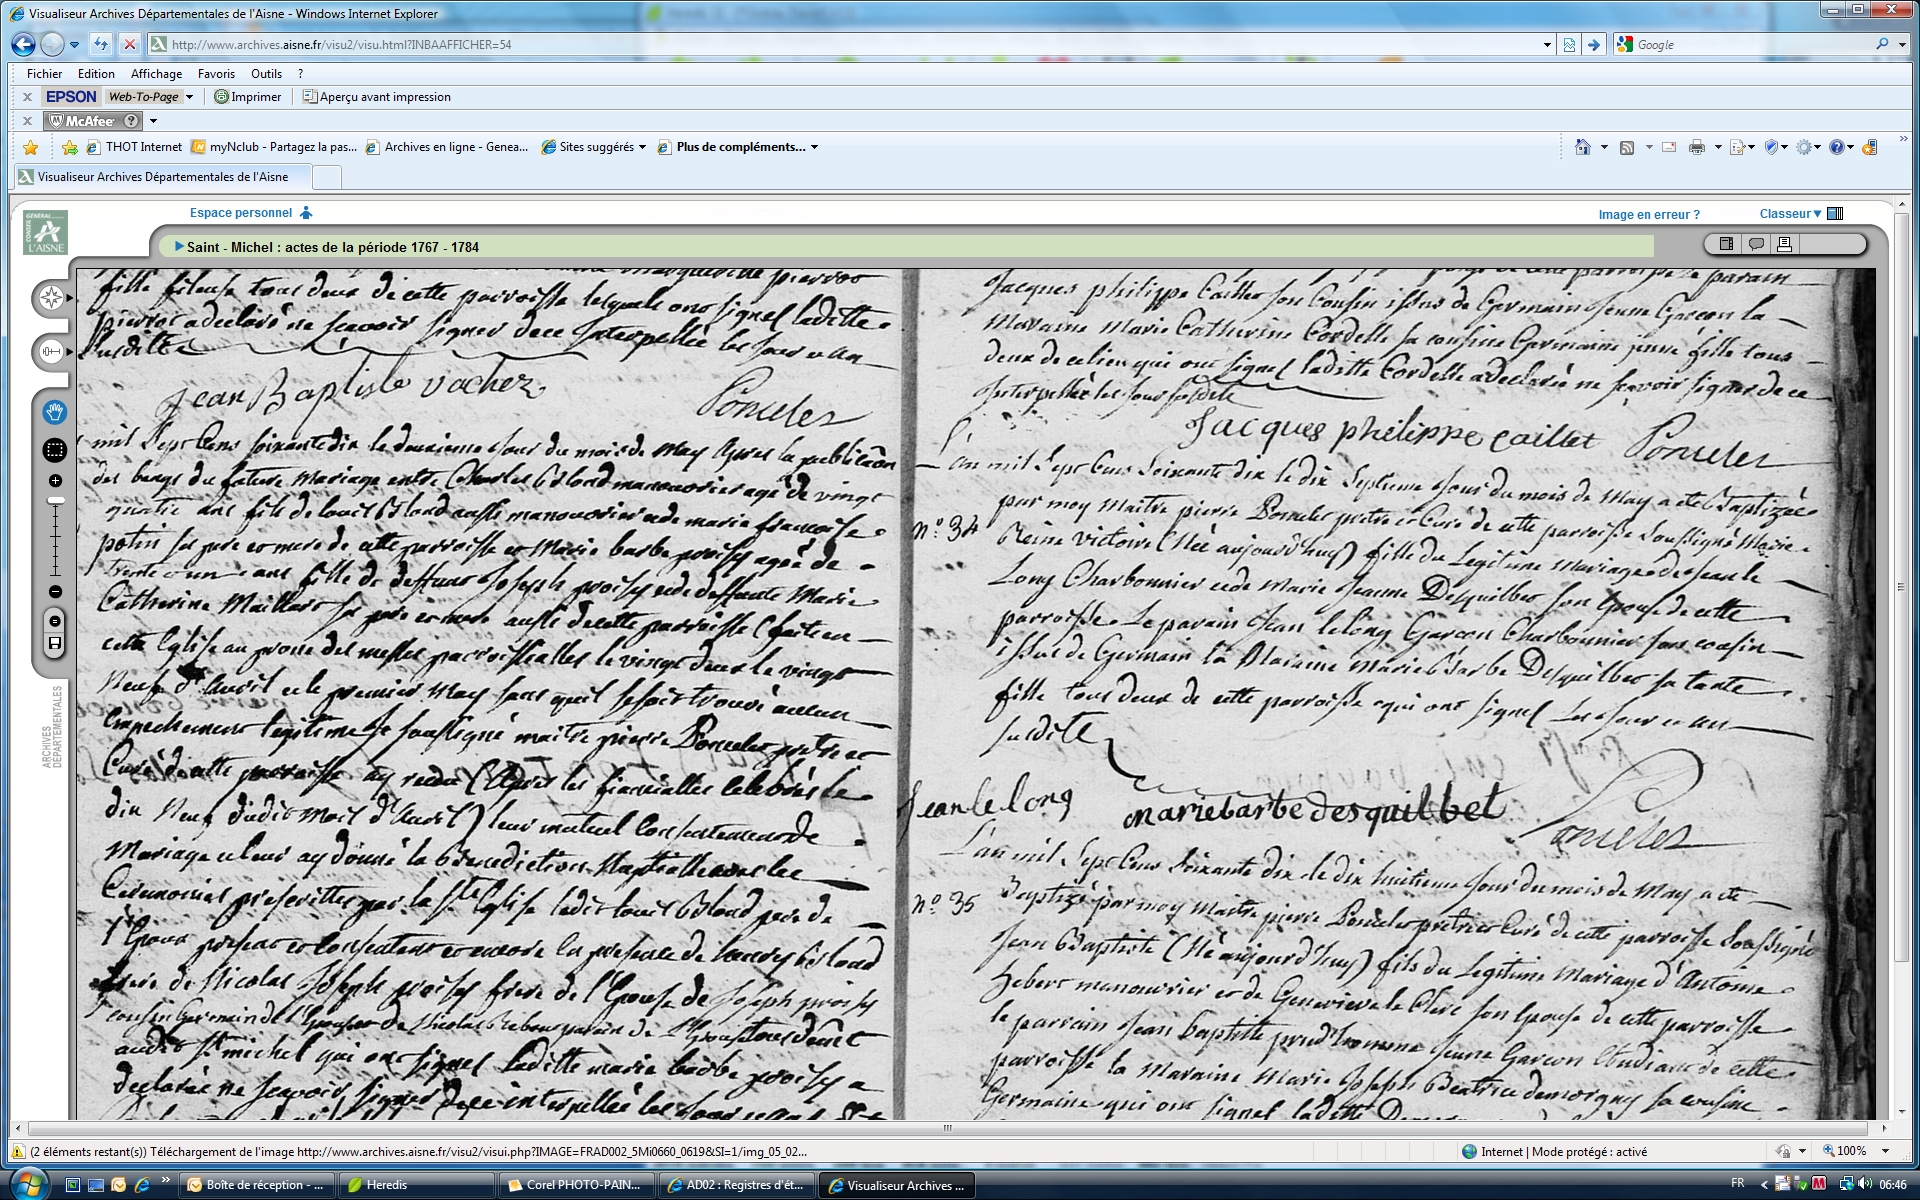 Visualiseur Archives Départementales de l'Aisne - Windows Internet Explorer
http://www.archives.aisne.fr/visu2/visu.html?INBAAFFICHER=54
Google
Fichier Edition Affichage Favoris Outils ?
x EPSON Web-To-Page Imprimer Aperçu avant impression
x McAfee ?
THOT Internet myNclub - Partagez la pas... Archives en ligne - Genea... Sites suggérés Plus de compléments...
Visualiseur Archives Départementales de l'Aisne
CONSEIL GÉNÉRAL L'AISNE
Espace personnel
Image en erreur ? Classeur
Saint - Michel : actes de la période 1767 - 1784
ARCHIVES DÉPARTEMENTALES
fille fileuse tous deux de cette parroisse lesquels ont signé laditte
pierrot a declaré ne sçavoir signer de ce interpellée les jour et an
susditte
Jean Baptiste Vacher Ponceles
mil sept cens soixante dix le deuxieme jour du mois de may apres la publication
des bangs du futur mariage entre Charles Blond manouvrier agé de vingt
quatre ans fils de Louis Blond aussi manouvrier et de marie francoise
potin ses pere et mere de cette parroisse et Marie barbe agée de
trente et un ans fille de deffunt Joseph et de deffunte Marie
Catherine Maillart ses pere et mere aussi de cette parroisse (faite en
cette Eglise au prone des messes parroissialles le vingt deux le vingt
Neuf d'Avril et le premier May sans quil se soit trouvé aucun
Empechement legitime Je soussigné maitre pierre Ponceles pretre et
Curé de cette parroisse ay recu (apres les fiancialles celebrés le
dix Neuf dudit mois d'Avril) leur mutuel consentement de
Mariage et leur ay donné la Benediction Nuptialle avec les
Ceremonies prescrittes par la Ste Eglise ledit Louis Blond pere de
l'Epoux present et consentant et encore en presence de Blond
frere de Nicolas Joseph frere de l'Epouse de Joseph
cousin Germain de l'Epouse de Nicolas
audit St michel qui ont signé laditte marie barbe a
declarée ne sçavoir signer de ce interpellée les jour et an
parroisse le parain
Jacques philippe Caillet son Cousin issus de Germain jeune Garcon la
Maraine Marie Catherine Cordelle sa cousine Germaine jeune fille tous
deux de ce lieu qui ont signé laditte Cordelle a declarée ne sçavoir signer de ce
interpellée les jour susditte
Jacques philippe caillet Ponceles
L'an mil sept cens soixante dix le dix septieme jour du mois de May a eté Baptizée
par moy maitre pierre Ponceles pretre et Curé de cette parroisse soussigné Marie
nº 34 Reine victoire (Née aujourd'huy) fille du Legitime mariage de Jean le
Long Charbonnier et de Marie Jeanne Desquilbet son Epouse de cette
parroisse. Le parain Jean lelong Garcon Charbonnier son cousin
issus de Germain la Maraine Marie Barbe Desquilbet sa tante
fille tous deux de cette parroisse qui ont signé les jour et an
susditte
Jean le long marie barbe desquilbet Ponceles
L'an mil sept cens soixante dix le dix huitieme jour du mois de May a eté
nº 35 Baptizé par moy Maitre pierre Ponceles pretre et Curé de cette parroisse soussigné
Jean Baptiste (Né aujourd'huy) fils du Legitime Mariage d'Antoine
hebert manouvrier et de Genevieve le Clerc son Epouse de cette parroisse
le parrain Jean baptiste prud'homme jeune Garcon Etudiant de cette
parroisse la Maraine Marie Joseph Beatrice demorgny sa cousine
Germaine qui ont signé laditte
(2 éléments restant(s)) Téléchargement de l'image http://www.archives.aisne.fr/visu2/visui.php?IMAGE=FRAD002_5Mi0660_0619&SI=1/img_05_02...
Internet | Mode protégé : activé 100%
Boîte de réception - ... Heredis Corel PHOTO-PAIN... AD02 : Registres d'ét... Visualiseur Archives ... FR 06:46